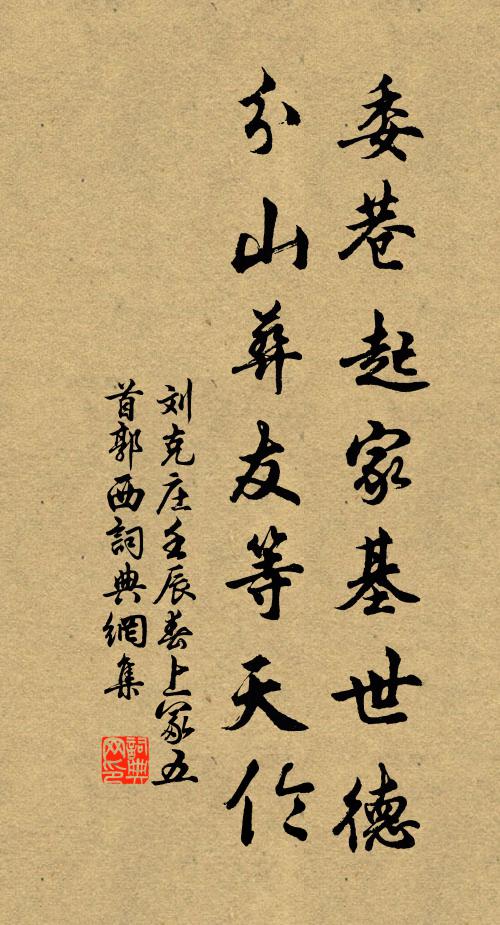 委巷起家基世德
分山葬友等天伦
刘克庄壬辰春上冢五
首郭西詞典網集
詞典网印